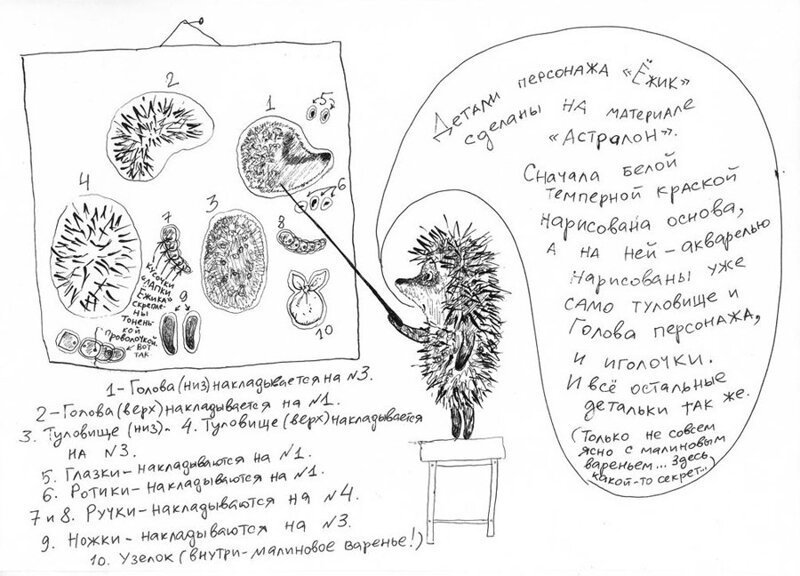 2
1
5
4
3
7
8
6
9
10
кусочки
«лапки
Ёжика»
скрепле-
ны
тонень-
кой
проволочкой.
вот
так
1 - Голова (низ) накладывается на №3.
2 - Голова (верх) накладывается на №1.
3. Туловище (низ) - 4. Туловище (верх) накладывается
на №3.
5. Глазки - накладываются на №1.
6. Ротики - накладываются на №1.
7 и 8. Ручки - накладываются на №4.
9. Ножки - накладываются на №3.
10. Узелок (внутри - малиновое варенье!)
Детали персонажа «Ёжик»
сделаны на материале
«Астралон».
Сначала белой
темперной краской
нарисована основа,
а на ней - акварелью
нарисованы уже
само туловище и
Голова персонажа,
и иголочки.
И всё остальные
детальки так же.
(Только не совсем
ясно с малиновым
вареньем... Здесь
какой-то секрет...)